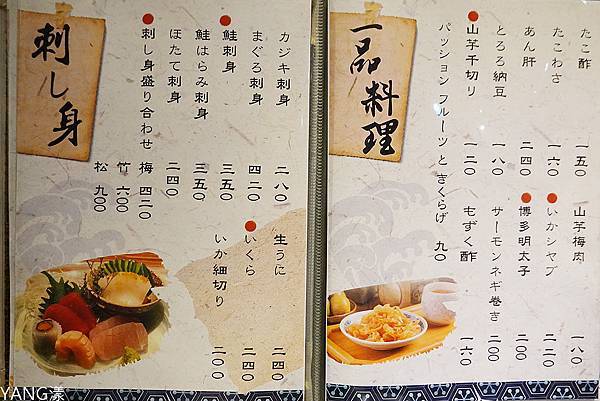 一品料理
たこ酢 一五〇
たこわさ 一六〇
あん肝 二四〇
とろろ納豆 一八〇
山芋千切り 一二〇
パッションフルーツときくらげ 九〇
山芋梅肉 一八〇
いかシャブ 二二〇
博多明太子 二〇〇
サーモンネギ巻き 二〇〇
もずく酢 一六〇
刺し身
カジキ刺身 二八〇
まぐろ刺身 四二〇
鮭刺身 三五〇
鮭はらみ刺身 三五〇
ほたて刺身 二四〇
刺し身盛り合わせ 梅 四二〇
竹 六〇〇
松 九〇〇
生うに 二四〇
いくら 二四〇
いか細切り 二〇〇
YANG漾